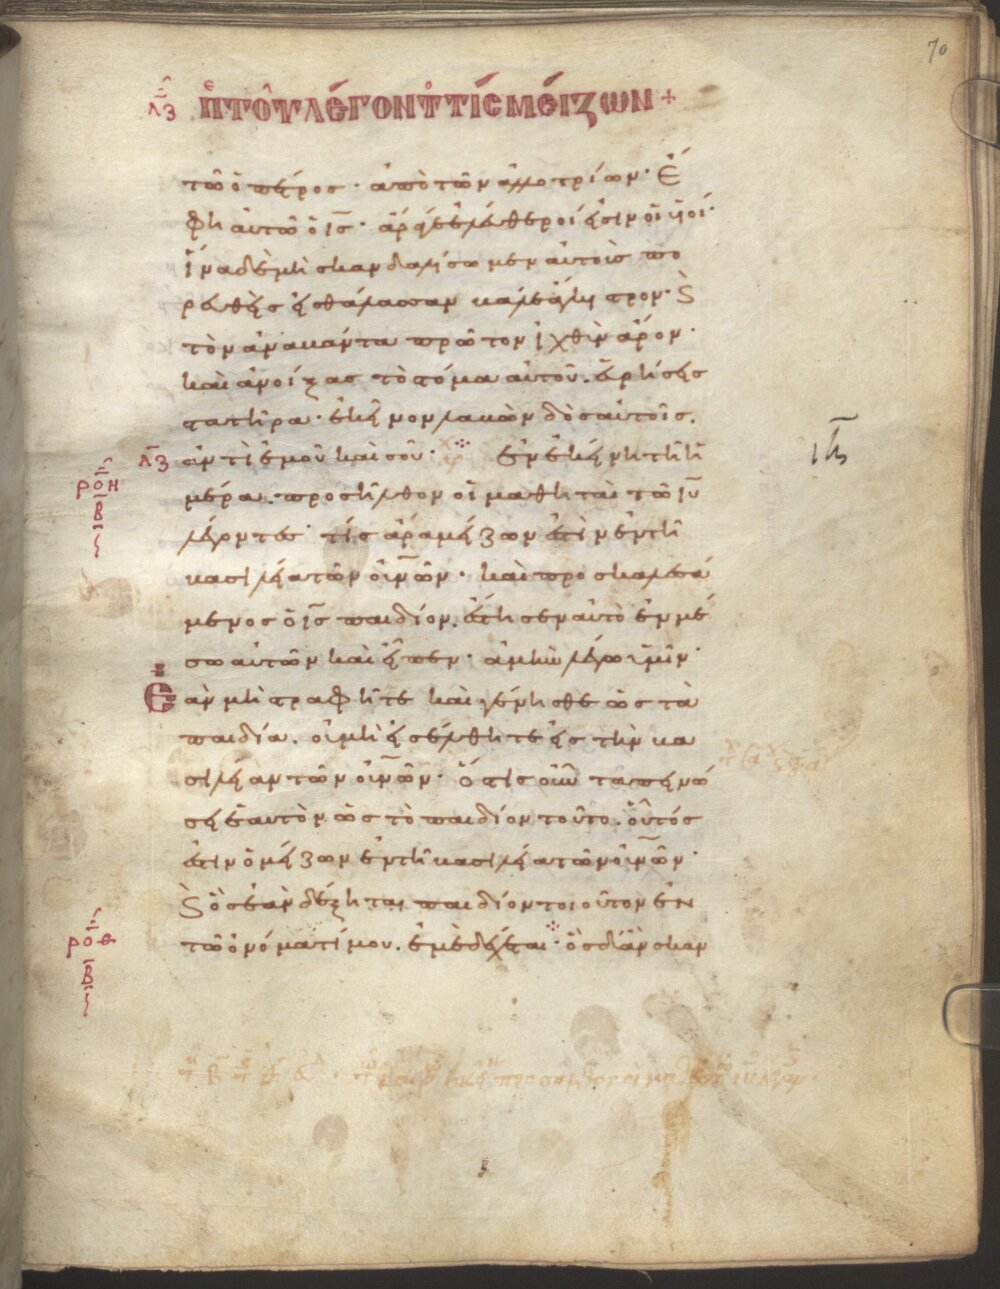 70
λζ περὶ τῶν λεγόντων τίς μείζων +
τῶ ὁ πέτρος· ἀπὸ τῶν ἀλλοτρίων· ἔ
φη αὐτῶ ὁ ις· ἄρά γε ἐλεύθεροί εἰσιν οἱ υἱοί·
ἵνα δὲ μὴ σκανδαλήσωμεν αὐτοὺς πο
ρευθεὶς εἰς θάλασσαν βάλε ἄγκιστρον· καὶ
τὸν ἀναβάντα πρῶτον ἰχθὺν ἆρον·
καὶ ἀνοίξας τὸ στόμα αὐτοῦ. εὑρήσεις
στατῆρα· ἐκεῖνον λαβὼν δὸς αὐτοῖς.
λζ ἀντὶ ἐμοῦ καὶ σοῦ· ἐν ἐκείνη τῆ ἡ
ροη
μέρα. προσῆλθον οἱ μαθηταὶ τῶ ιυ
β
λέγοντες· τίς ἄρα μείζων ἐστὶν ἐν τῆ
βασιλεία τῶν ουνῶν· καὶ προσκαλεσά
μενος ὁ ις παιδίον. ἔστησεν αὐτὸ ἐν μέ
σω αὐτῶν καὶ εἶπεν· ἀμὴν λέγω ὑμῖν·
Ἐὰν μὴ στραφῆτε καὶ γένησθε ὡς τὰ
παιδία. οὐ μὴ εἰσέλθητε εἰς τὴν βα
σιλείαν τῶν ουνῶν· ὅστις οὖν ταπεινώ
σει ἑαυτὸν ὡς τὸ παιδίον τοῦτο. οὗτός
ἐστιν ὁ μείζων ἐν τῆ βασιλεία τῶν ουνῶν·
καὶ ὃς ἐὰν δέξηται παιδίον τοιοῦτον ἐν
ροθ
τῶ ὀνόματί μου. ἐμὲ δέχεται· ὃς δ' ἂν σκαν
β